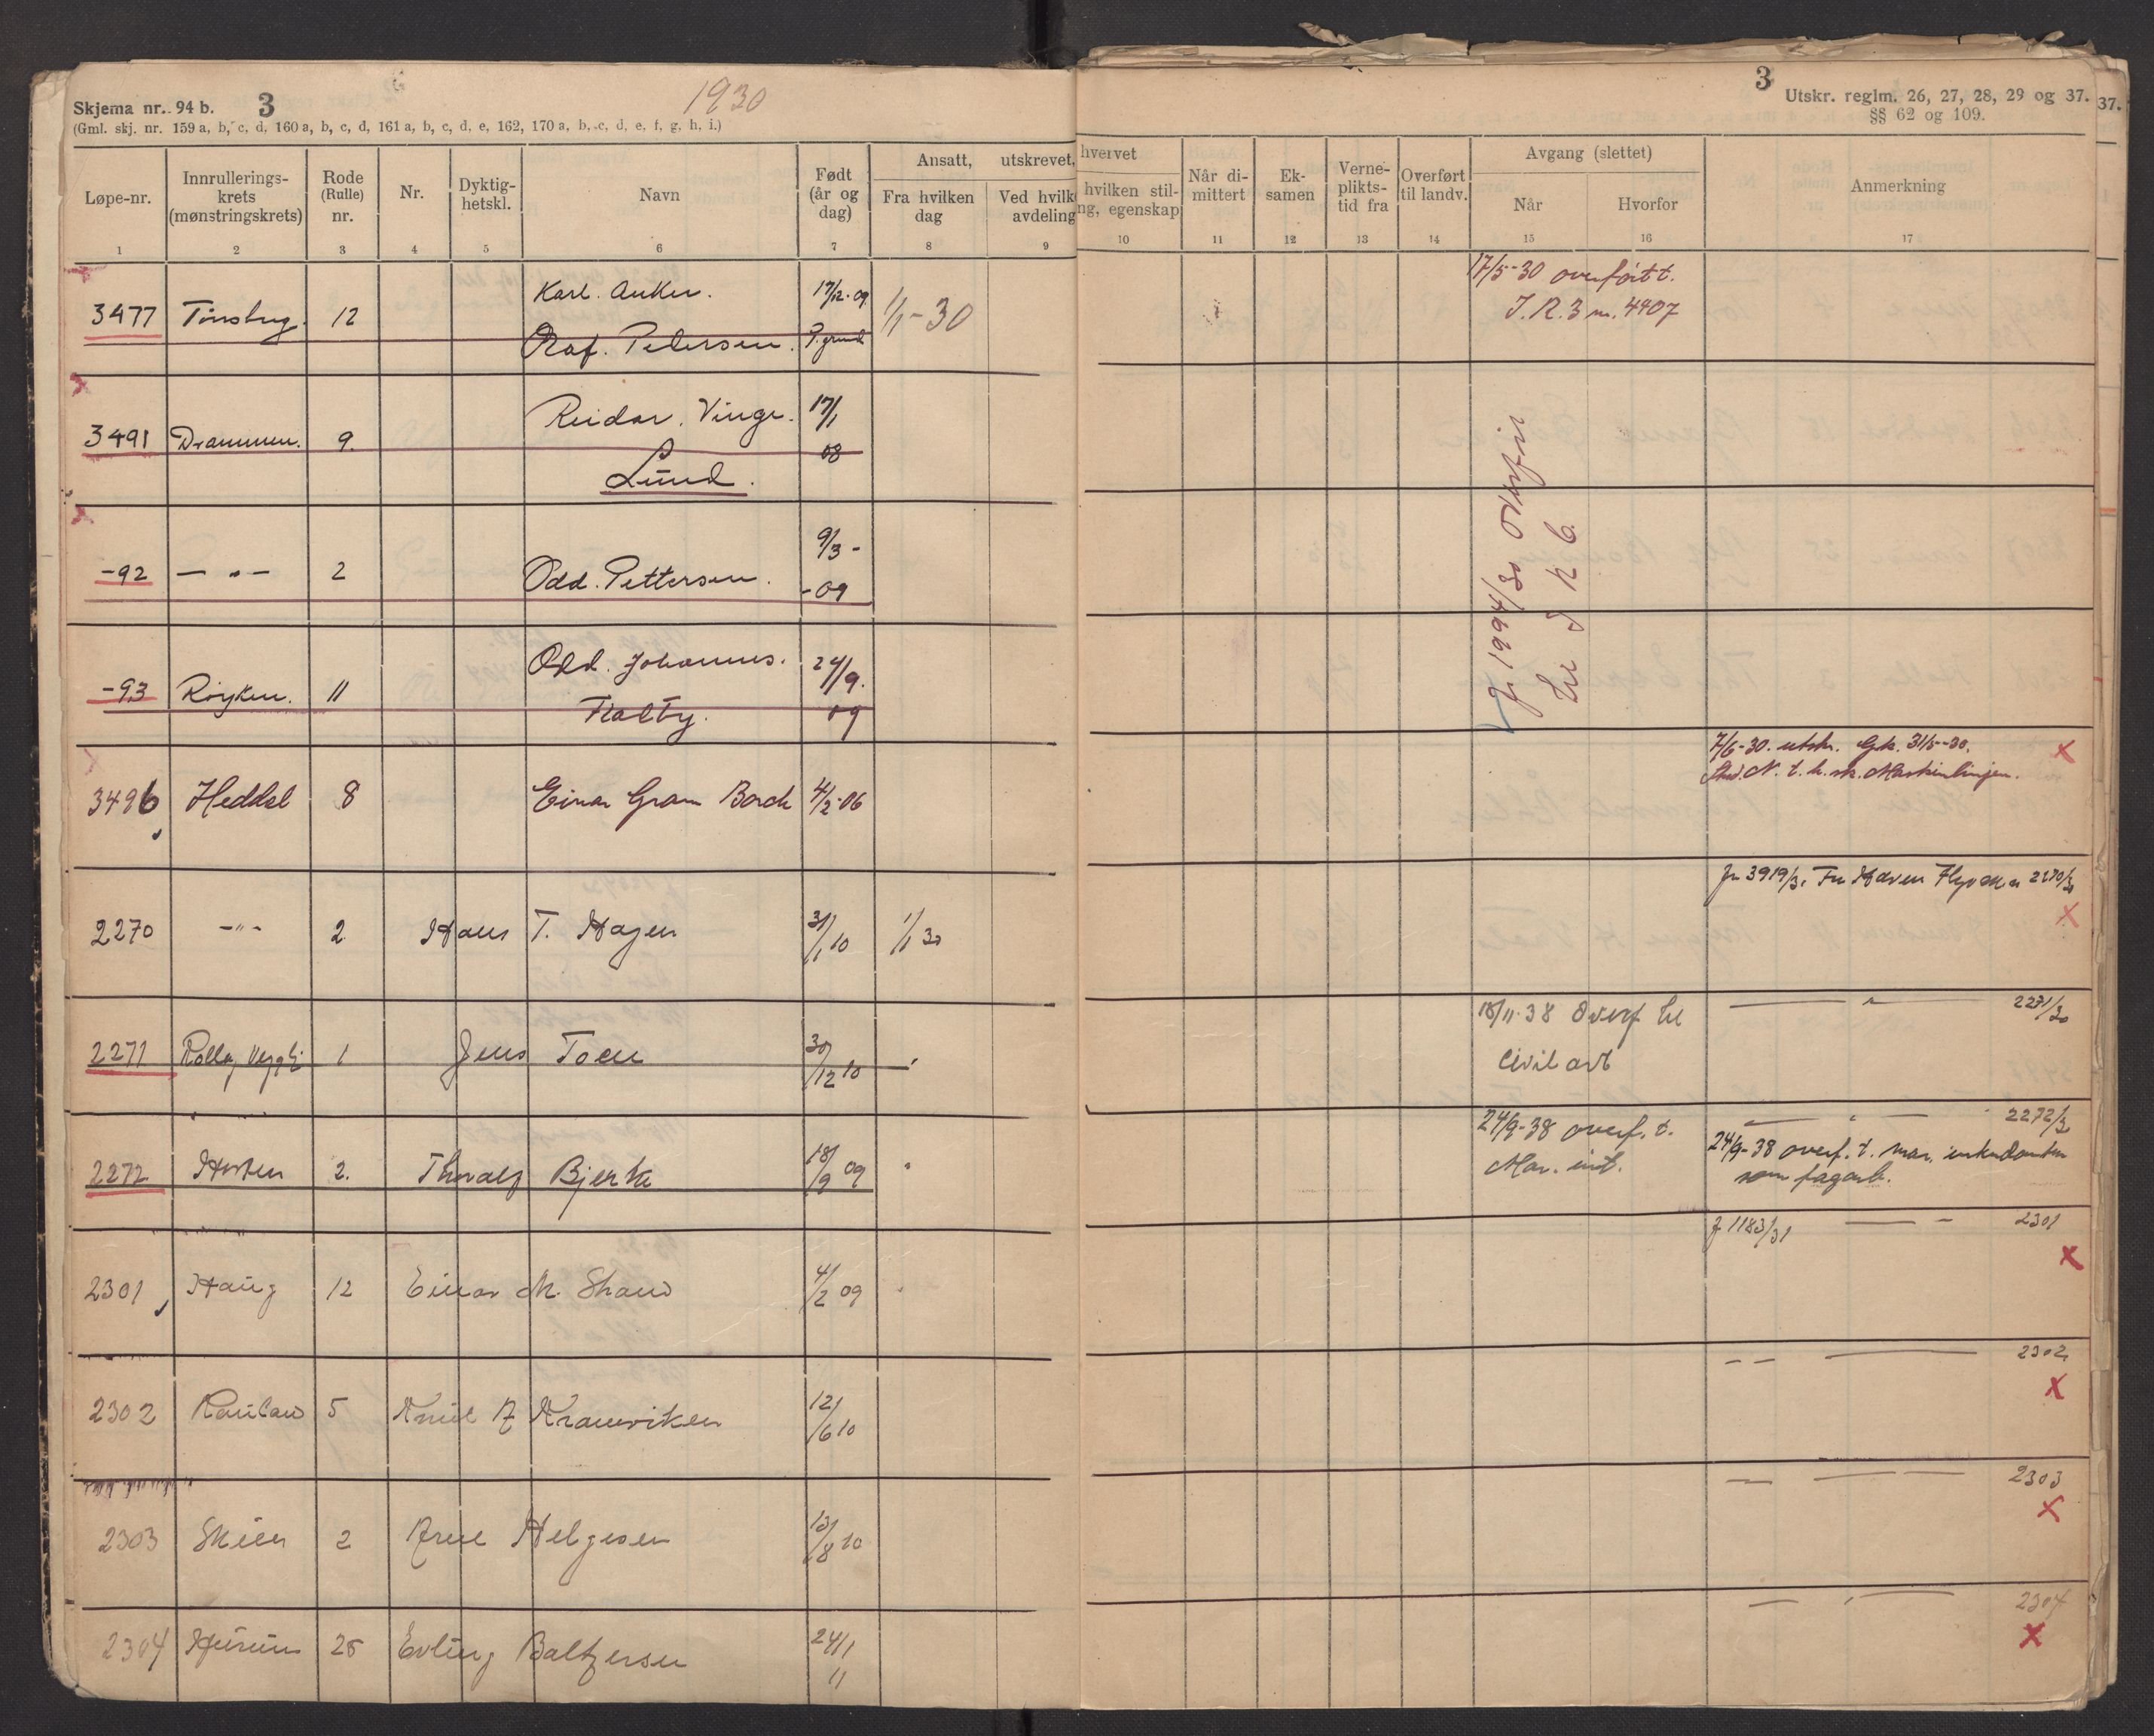 1930
Skjema nr. 94 b. 3
(Gml. skj. nr. 159 a, b, c, d, 160 a, b, c, d, 161 a, b, c, d, e, 162, 170 a, b, c, d, e, f, g, h, i.)
3
Utskr. reglm. 26, 27, 28, 29 og 37. 37.
§§ 62 og 109.
Løpe-nr. Innrullerings-krets (mønstringskrets) Rode (Rulle) nr. Nr. Dyktig-hetskl. Navn Født (år og dag) Ansatt, utskrevet, hvervet
Fra hvilken dag Ved hvilk avdeling hvilken stil-ng, egenskap
Når di-mittert Ek-samen Verne-plikts-tid fra Overført til landv. Avgang (slettet) Når Hvorfor Anmerkning
1 2 3 4 5 6 7 8 9 10 11 12 13 14 15 16 17
3477 Tønsbrg. 12 Karl. Anker. 17/12-09 1/1-30 17/5-30 overført t.
Olaf. Petersen. P.grund J. R. 3 nr. 4407
3491 Drammen. 9. Reidar. Vinge. 17/1
Lund. 08
-92 — " — 2 Odd. Pettersen. 9/3 -
-09
-93 Røyken. 11 Odd. Johannes. 24/9.
09
Jr 1994/30 Overført
til J R 6
3496 Heddal 8 Einar Gram Borch 4/2-06 7/6-30. utskr. Gk. 31/5-30. x
N. t. h. sk. Maskinlinjen.
2270 -"- 2 Hans T. Hagen 31/1 10 1/1 30 Jr 3919/31 Fra 2270/30
x
2271 Rollag Veggli 1 Jens Toen 30/12 10 " 18/11-38 Overf til — " — 2271/30
Civil arb
2272 Horten 2. Thoralf Bjerke 18/9 09 " 24/9-38 overf. t. — " — 2272/30
Mar. int. 24/9-38 overf. t. mar. intendanten
som fagarb.
2301 Haug 12 Einar M. 4/2 09 " J 1183/31 — - 2301
x
2302 Rauland 5 Knut A 12/6 10 - - — 2302
x
2303 Skien 2 Arne Helgesen 13/8 10 — — — 2303
x
2304 Hurum 25 Erling Baltzersen 24/1 — " — 2304
11 x